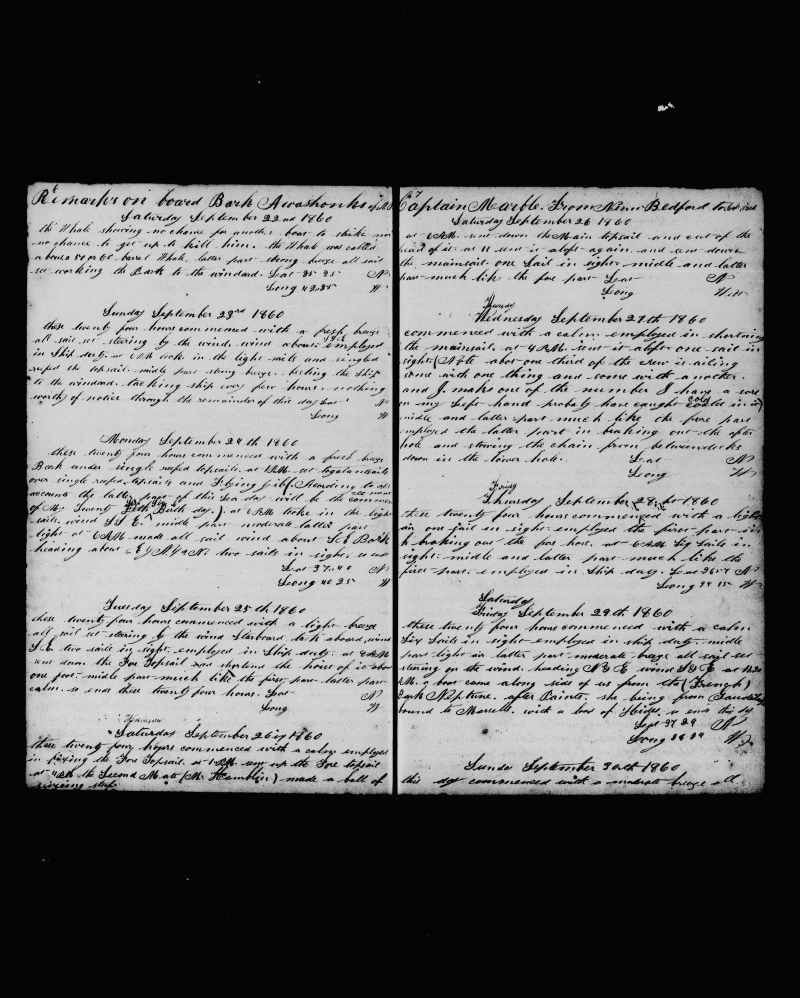 6
Remarks on board Bark Awashonks of N.B
Saturday September 22nd 1860
the Whale showing no chance for another boat to strike nor
no chance to get up to kill him. the Whale was called
about a 50 or 60 barrel Whale, latter part strong breeze all sail
set working the Bark to the windard. Lat 35 25 N
Long 42.35 W
Sunday September 23rd 1860
these twenty four hours commenced with a fresh breeze
all sail set stering by the wind. wind about employed
in Ship duty. at 6 P.M. took in the light sails and singled
reefed the topsails. middle part strong breeze. beating the Ship
to the windard. tacking ship every few hours. nothing
worthy of notice through the remainder of this day Lat N
Long W
Monday September 24th 1860
these twenty four hours commenced with a fresh breeze
Bark under single reefed topsails at 1 P.M. set togalantsails
over single reefed topsails and Flying Jibf. According to all
accounts the latter part of this Sea day will be the
of My Twenty Birth day.) at 6 P.M. tooke in the light
sails. wind S S E. middle part moderate latter part
light at 6 A.M. made all sail wind about S.E Bark
heading about two sails in sight. so ends
Lat 37.40 N
Long 40 25 W
Tuesday September 25th 1860
these twenty four hours commenced with a light breeze
all sail set stering by the wind Starboard tack aboard, wind
S.E. two sails in sight. employed in Ship duty. at 4 P.M.
sent down the Fore Topsail and shortend the hoist of it about
one foot. middle part much like the first part latter part
calm. so ends these twenty four hours. Lat N
Long W
Saturday September 26th 1860
these twenty four hours commenced with a calm employed
in fixing the Fore Topsail. at 1 P.M. sent up the Fore topsail
at 4 P.M. the Second Mate (Mr. Hamblin) made a ball of
7
Captain Marble. From New Bedford to
Saturday September 26 1860
at 6 A.M. sent down the Main topsail and cut of the
head of it. at 11 sent it aloft again. and sent down
the mainsail. one Sail in sight. middle and latter
part much like the fore part Lat N
Long W
Thursday
Wednesday September 27th 1860
commenced with a calm. employed in shortning
the mainsails. at 4 P.M. sent it aloft. one sail in
sight. (Note abot one third of the crew is ailing
some with one thing and some with a nother.
and I make one of the number I have a sore
on my left hand. probaly have caught cold in it)
middle and latter part much like the fore part
employed the latter part in braking out the after
hole and stowing the chain from betweendecks
down in the lower hole. Lat N
Long W
Friday
Thursday September 28th 1860
these twenty four hours commenced with a light
air one sail in sight. employed the first part in
braking out the fore hole. at 6 P.M. Six Sails in
sight. middle and latter part much like the
first part. employed in Ship duty. Lat N
Long W
Saturday
Friday September 29th 1860
these twenty four hours commenced with a calm
Six Sails in sight employed in ship duty. middle
part light air latter part moderate breeze all sail set
stering on the wind. heading N E wind at
M. a boat came along side of us from the (French)
Bark Neptune. after Paints, she being from
bound to Marsells. with a load of Hides, so ends this day
Lat 37 29 N
Long W
Sunday September 30th 1860
this day commenced with a moderate breeze all